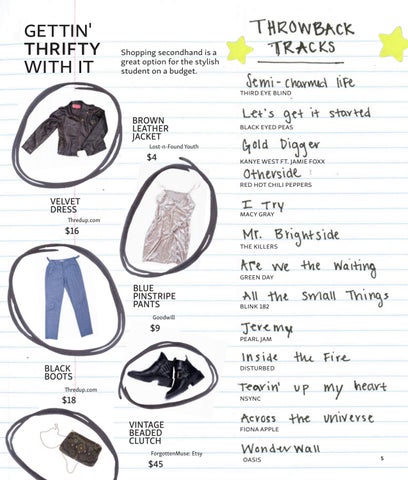 GETTIN'
THRIFTY
WITH IT
Shopping secondhand is a
great option for the stylish
student on a budget.
BROWN
LEATHER
JACKET
Lost-n-Found Youth
$4
VELVET
DRESS
Thredup.com
$16
BLUE
PINSTRIPE
PANTS
Goodwill
$9
BLACK
BOOTS
Thredup.com
$18
VINTAGE
BEADED
CLUTCH
ForgottenMuse: Etsy
$45
THROWBACK
TRACKS
Semi-charmed life
THIRD EYE BLIND
Let's get it started
BLACK EYED PEAS
Gold Digger
KANYE WEST FT. JAMIE FOXX
Otherside
RED HOT CHILI PEPPERS
I Try
MACY GRAY
Mr. Brightside
THE KILLERS
Are we the Waiting
GREEN DAY
All the Small Things
BLINK 182
Jeremy
PEARL JAM
Inside the Fire
DISTURBED
Tearin' up my heart
NSYNC
Across the universe
FIONA APPLE
Wonderwall
OASIS
5